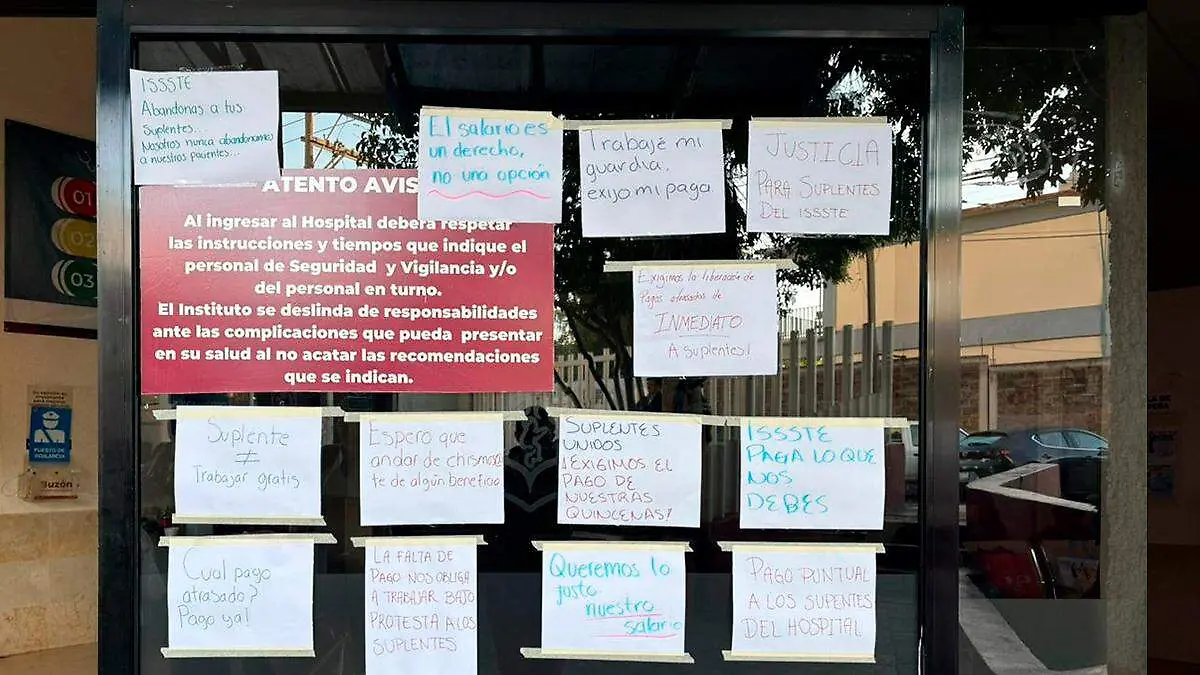 ISSSTE
Abandonas a tus
Suplentes..
Nosotros nunca abandonamos
a nuestros pacientes...
El salario es
un derecho,
no una opción
Trabajé mi
guardia,
exijo mi paga
JUSTICIA
PARA SUPLENTES
DEL ISSSTE
ATENTO AVIS
Al ingresar al Hospital deberá respetar
las instrucciones y tiempos que indique el
personal de Seguridad y Vigilancia y/o
del personal en turno.
El Instituto se deslinda de responsabilidades
ante las complicaciones que pueda presentar
en su salud al no acatar las recomendaciones
que se indican.
Exigimos la liberación de
Pagos atrasados de
INMEDIATO
A suplentes!
01
02
03
Suplente
≠
Trabajar gratis
Espero que
andar de chismosa
te de algún beneficio
SUPLENTES
UNIDOS
¡EXIGIMOS EL
PAGO DE
NUESTRAS
QUINCENAS!
ISSSTE
PAGA LO QUE
NOS
DEBES
PUESTO DE
VIGILANCIA
Buzón
Cual pago
atrasado?
Pago ya!
LA FALTA DE
PAGO NOS OBLIGA
A TRABAJAR BAJO
PROTESTA A LOS
SUPLENTES
Queremos lo
justo
nuestro
salario
PAGO PUNTUAL
A LOS SUPENTES
DEL HOSPITAL